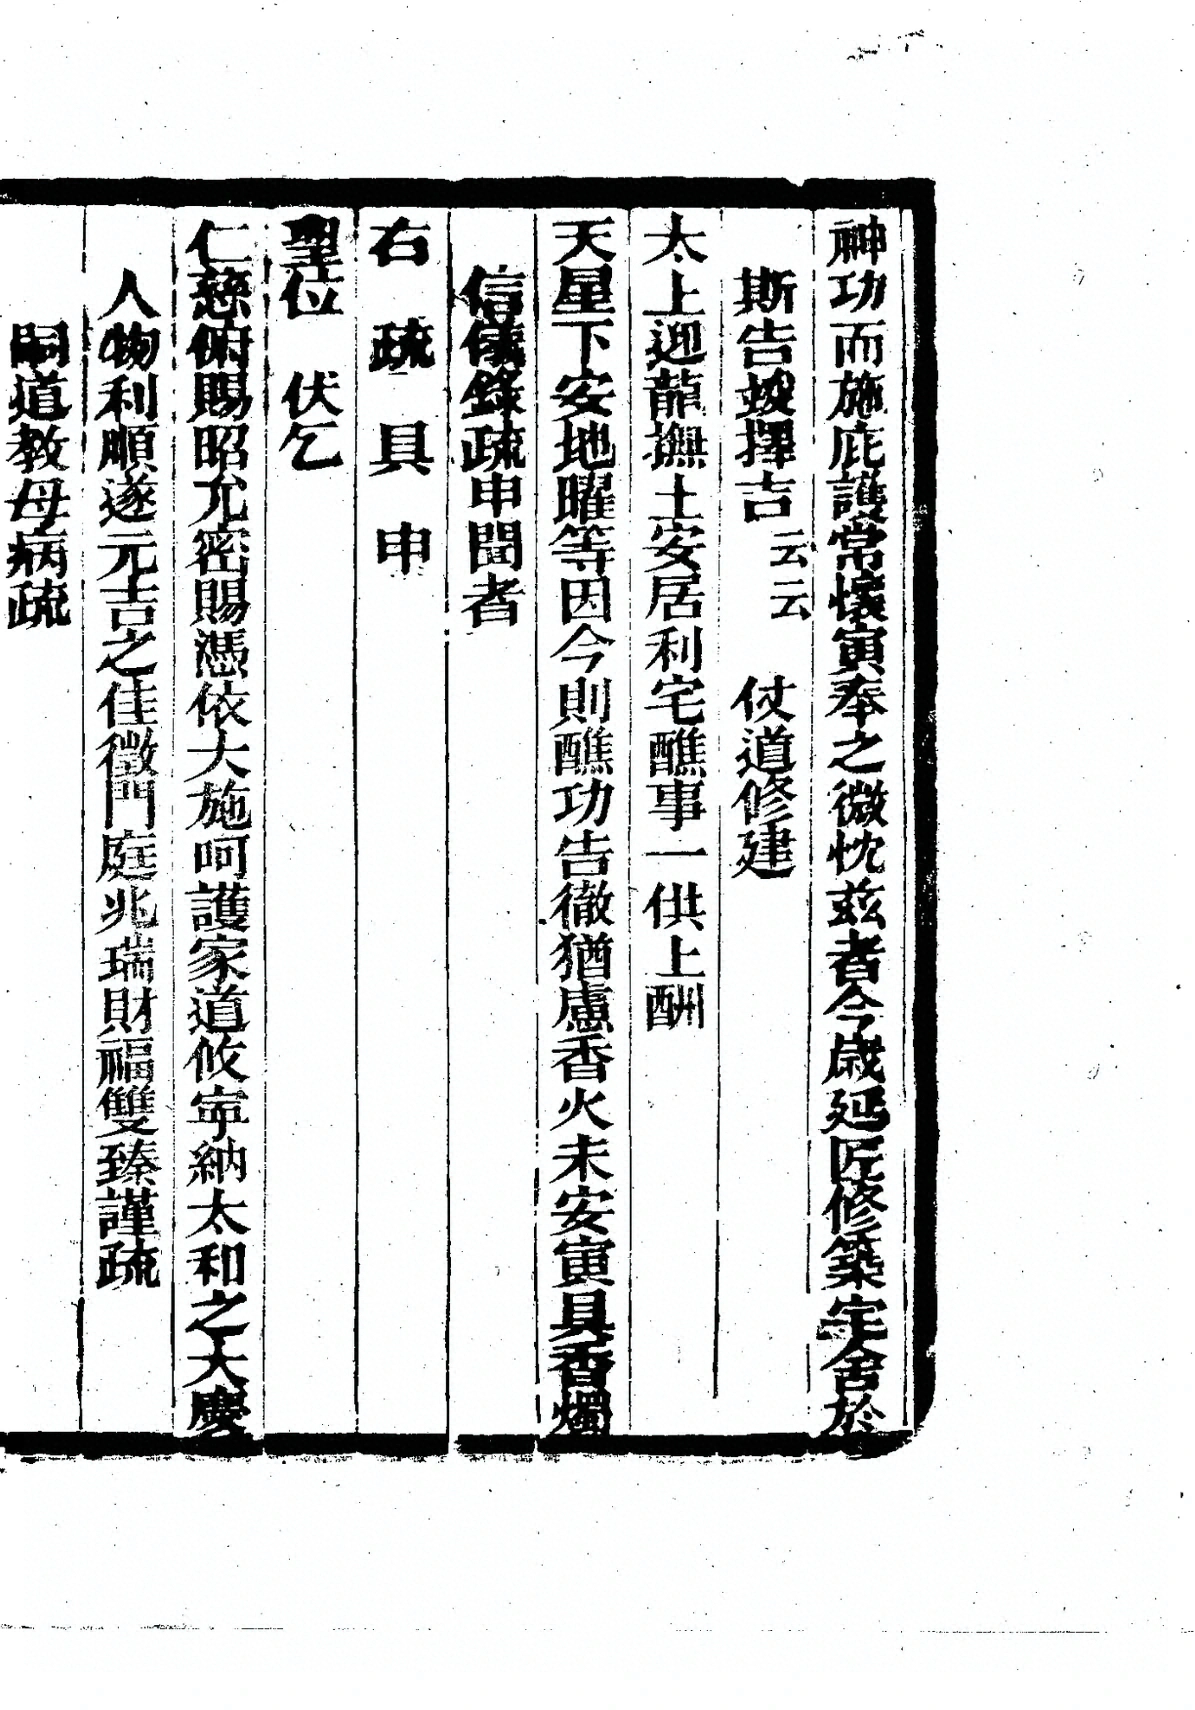 神功而施庇護常懷寅奉之微忱兹者今歲延匠修築宅舍於
斯告竣擇吉云云　仗道修建
太上迎龍撫土安居利宅醮事一供上酬
天星下安地曜等因今則醮功告徹猶慮香火未安寅具香燭
信儀錄疏申聞者
右　疏　具　申
聖位　伏乞
仁慈俯賜昭允密賜憑依大施呵護家道攸寜納太和之大慶
人物利順遂元吉之佳徵門庭兆瑞財福雙臻謹疏
嗣道教母病疏